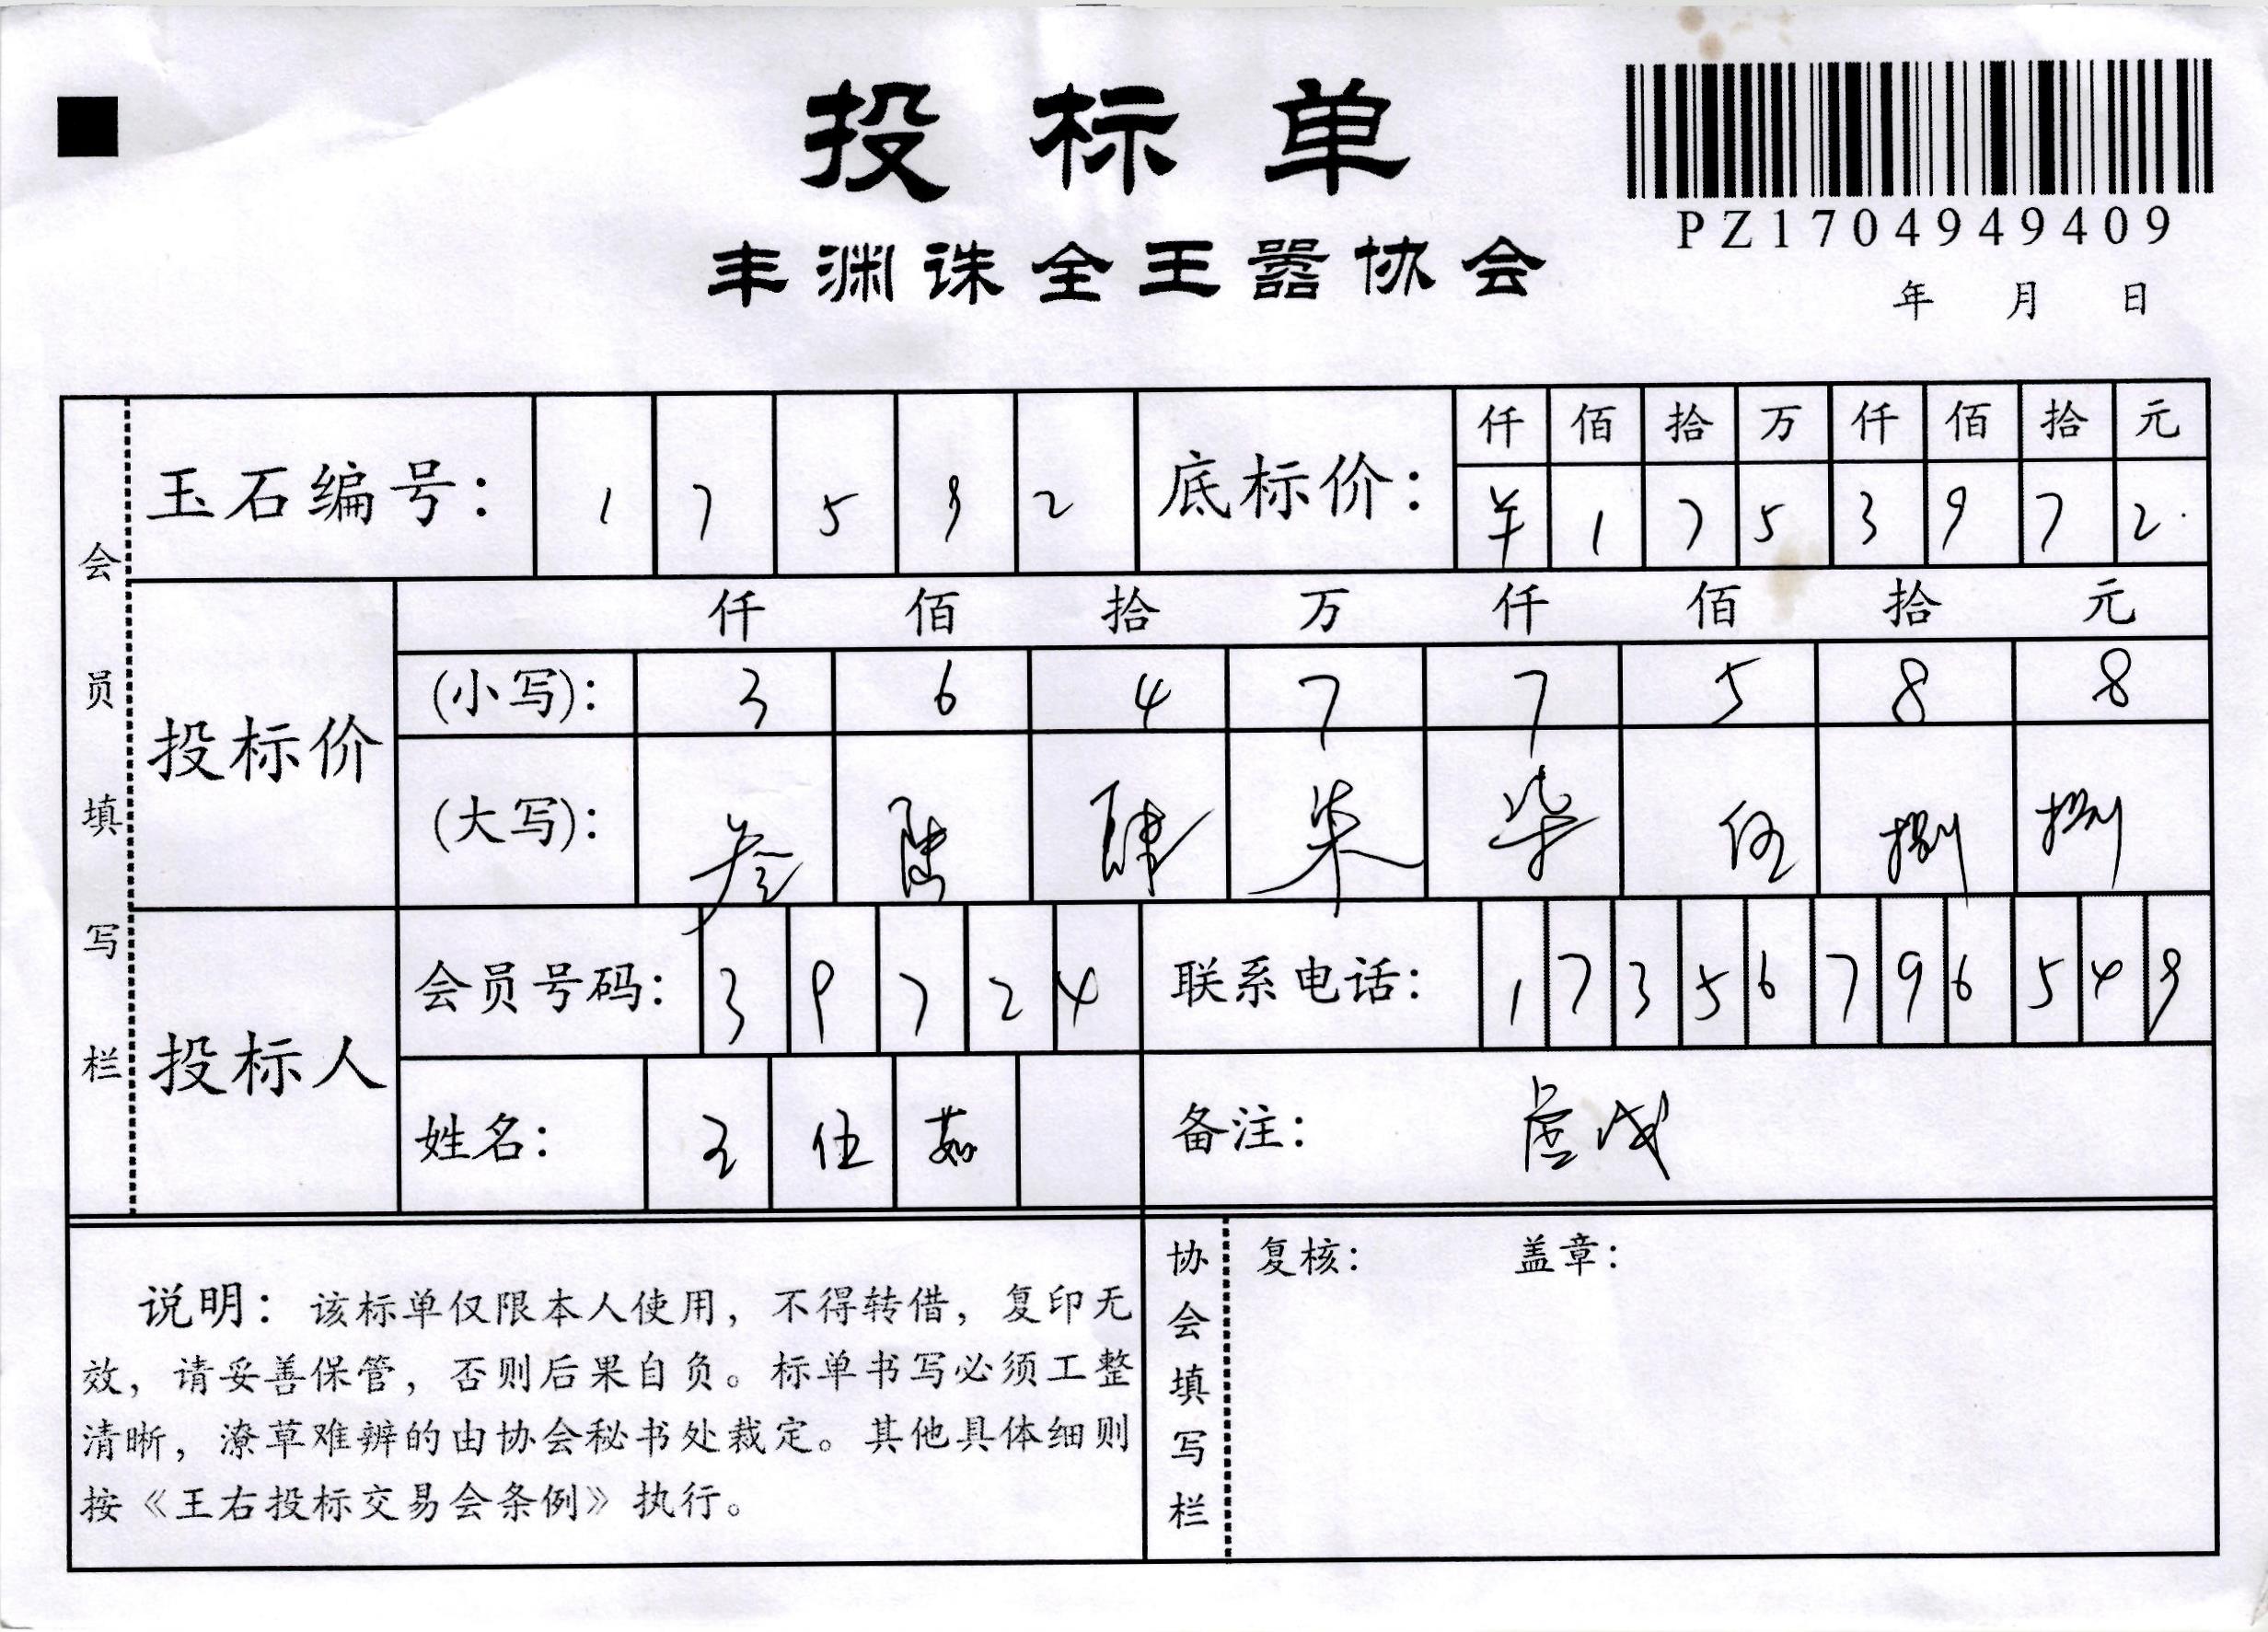 投标单
丰渊诛全王嚣协会
PZ1704949409
年 月 日
会员填写栏
玉石编号： 1 7 5 9 2
底标价： 仟 佰 拾 万 仟 佰 拾 元
¥ 1 7 5 3 9 7 2
投标价
仟 佰 拾 万 仟 佰 拾 元
(小写)： 3 6 4 7 7 5 8 8
(大写)： 叁 陆 肆 柒 柒 伍 捌 捌
投标人
会员号码： 3 9 7 2 4
联系电话： 1 7 3 5 6 7 9 6 5 4 9
姓名： 王 伍 茹
备注：
说明：该标单仅限本人使用，不得转借，复印无
效，请妥善保管，否则后果自负。标单书写必须工整
清晰，潦草难辨的由协会秘书处裁定。其他具体细则
按《王右投标交易会条例》执行。
协会填写栏
复核： 盖章：